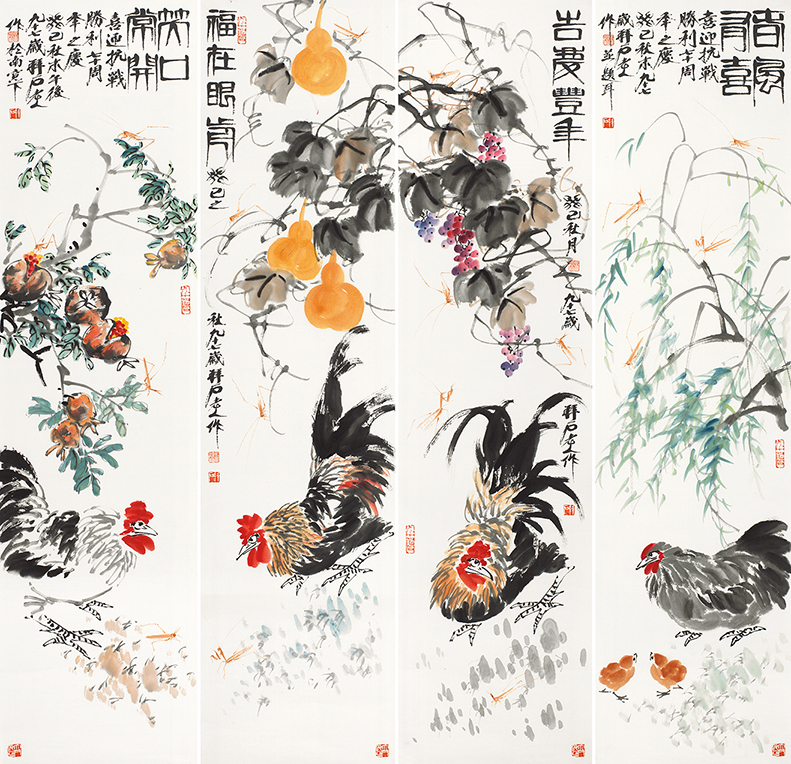 春風
有喜
喜迎抗戰
勝利十周
年之慶
癸巳秋末九七
歲石老人
作並題耳
吉慶豐年
癸巳秋月
九七歲
石老人作
福在眼前
癸巳之
秋九七歲石老人作
笑口
常開
喜迎抗戰
勝利十周
年之慶
癸巳秋末午後
九七歲石老人
作於南窗下